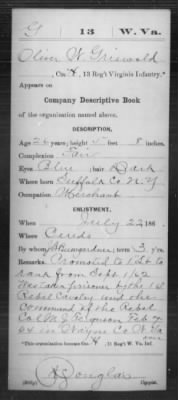 G | 13 | W. Va.
Oliver W. Griswold
, Co. H, 13 Reg't Virginia Infantry.*
Appears on
Company Descriptive Book
of the organization named above.
DESCRIPTION.
Age 26 years; height 5 feet 8 inches.
Complexion Fair
Eyes Blue; hair Dark
Where born Suffolk Co N.Y.
Occupation Merchant
ENLISTMENT.
When July 22, 186
Where Ceredo
By whom Bumgardner; term 3 y'rs.
Remarks: Promoted to 1st to
rank from Sept 1/62
Was taken prisoner by the 1st
Rebel Cavalry under
command of the Rebel
Col M. J. Ferguson Feb 4
64 in Wayne Co W. Va
*This organization became Co. H, 13 Reg't W. Va. Inf.
Douglas